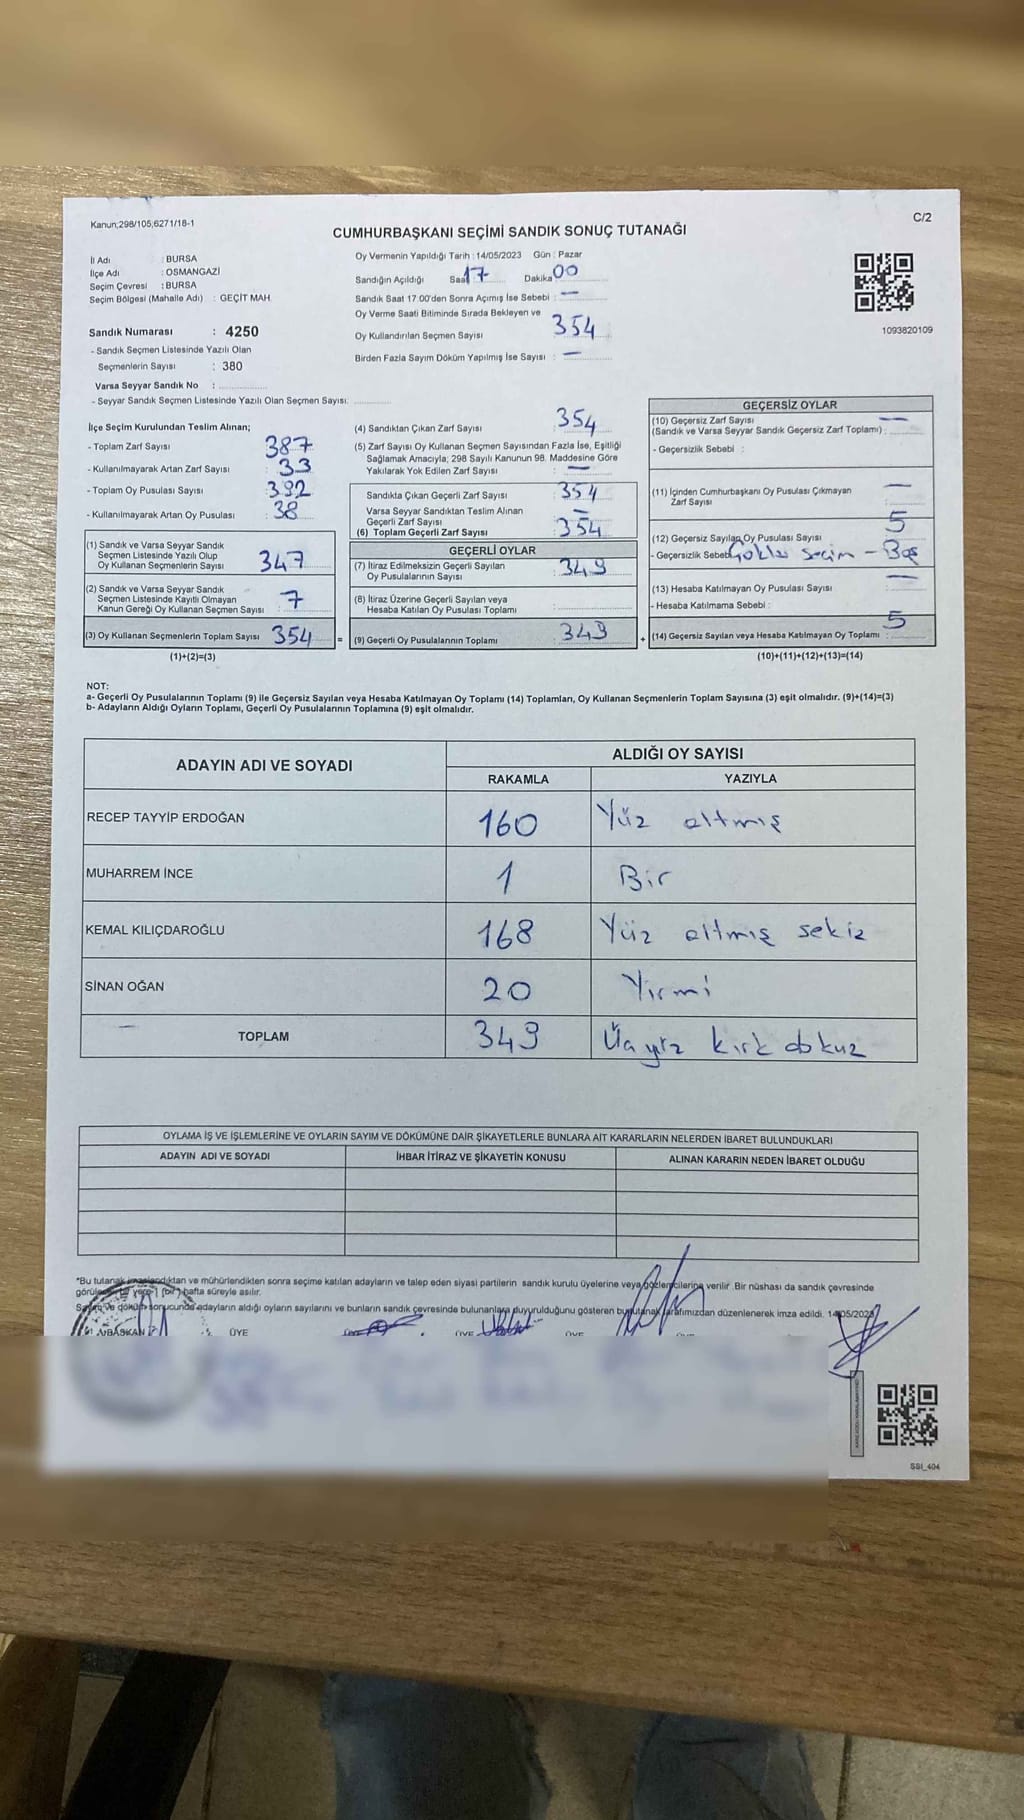 Kanun;298/105;6271/18-1
C/2
CUMHURBAŞKANI SEÇİMİ SANDIK SONUÇ TUTANAĞI
İl Adı : BURSA
İlçe Adı : OSMANGAZİ
Seçim Çevresi : BURSA
Seçim Bölgesi (Mahalle Adı) : GEÇİT MAH.
Sandık Numarası : 4250
- Sandık Seçmen Listesinde Yazılı Olan
Seçmenlerin Sayısı : 380
Varsa Seyyar Sandık No :
- Seyyar Sandık Seçmen Listesinde Yazılı Olan Seçmen Sayısı:
Oy Vermenin Yapıldığı Tarih : 14/05/2023 Gün : Pazar
Sandığın Açıldığı Saat 17 Dakika 00
Sandık Saat 17:00'den Sonra Açımış İse Sebebi : —
Oy Verme Saati Bitiminde Sırada Bekleyen ve
Oy Kullandırılan Seçmen Sayısı 354
Birden Fazla Sayım Döküm Yapılmış İse Sayısı : —
1093820109
İlçe Seçim Kurulundan Teslim Alınan;
- Toplam Zarf Sayısı 387
- Kullanılmayarak Artan Zarf Sayısı 33
- Toplam Oy Pusulası Sayısı 392
- Kullanılmayarak Artan Oy Pusulası 38
(1) Sandık ve Varsa Seyyar Sandık
Seçmen Listesinde Yazılı Olup
Oy Kullanan Seçmenlerin Sayısı 347
(2) Sandık ve Varsa Seyyar Sandık
Seçmen Listesinde Kayıtlı Olmayan
Kanun Gereği Oy Kullanan Seçmen Sayısı 7
(3) Oy Kullanan Seçmenlerin Toplam Sayısı 354
(1)+(2)=(3)
(4) Sandıktan Çıkan Zarf Sayısı 354
(5) Zarf Sayısı Oy Kullanan Seçmen Sayısından Fazla İse, Eşitliği
Sağlamak Amacıyla; 298 Sayılı Kanunun 98. Maddesine Göre
Yakılarak Yok Edilen Zarf Sayısı : —
Sandıkta Çıkan Geçerli Zarf Sayısı : 354
Varsa Seyyar Sandıktan Teslim Alınan
Geçerli Zarf Sayısı : —
(6) Toplam Geçerli Zarf Sayısı : 354
GEÇERLİ OYLAR
(7) İtiraz Edilmeksizin Geçerli Sayılan
Oy Pusulalarının Sayısı : 349
(8) İtiraz Üzerine Geçerli Sayılan veya
Hesaba Katılan Oy Pusulası Toplamı :
= (9) Geçerli Oy Pusulalarının Toplamı : 349 +
GEÇERSİZ OYLAR
(10) Geçersiz Zarf Sayısı
(Sandık ve Varsa Seyyar Sandık Geçersiz Zarf Toplamı) : —
- Geçersizlik Sebebi :
(11) İçinden Cumhurbaşkanı Oy Pusulası Çıkmayan
Zarf Sayısı —
(12) Geçersiz Sayılan Oy Pusulası Sayısı 5
- Geçersizlik Sebebi Çoklu seçim - Boş
(13) Hesaba Katılmayan Oy Pusulası Sayısı —
- Hesaba Katılmama Sebebi :
(14) Geçersiz Sayılan veya Hesaba Katılmayan Oy Toplamı : 5
(10)+(11)+(12)+(13)=(14)
NOT:
a- Geçerli Oy Pusulalarının Toplamı (9) ile Geçersiz Sayılan veya Hesaba Katılmayan Oy Toplamı (14) Toplamları, Oy Kullanan Seçmenlerin Toplam Sayısına (3) eşit olmalıdır. (9)+(14)=(3)
b- Adayların Aldığı Oyların Toplamı, Geçerli Oy Pusulalarının Toplamına (9) eşit olmalıdır.
ADAYIN ADI VE SOYADI
ALDIĞI OY SAYISI
RAKAMLA YAZIYLA
RECEP TAYYİP ERDOĞAN 160 Yüz altmış
MUHARREM İNCE 1 Bir
KEMAL KILIÇDAROĞLU 168 Yüz altmış sekiz
SİNAN OĞAN 20 Yirmi
TOPLAM 349 Üçyüz kırk dokuz
OYLAMA İŞ VE İŞLEMLERİNE VE OYLARIN SAYIM VE DÖKÜMÜNE DAİR ŞİKAYETLERLE BUNLARA AİT KARARLARIN NELERDEN İBARET BULUNDUKLARI
ADAYIN ADI VE SOYADI İHBAR İTİRAZ VE ŞİKAYETİN KONUSU ALINAN KARARIN NEDEN İBARET OLDUĞU
*Bu tutanak imzalandıktan ve mühürlendikten sonra seçime katılan adayların ve talep eden siyasi partilerin sandık kurulu üyelerine veya gözlemcilerine verilir. Bir nüshası da sandık çevresinde
görülebilir yere 1 (bir) hafta süreyle asılır.
Sayım ve döküm sonucunda adayların aldığı oyların sayılarını ve bunların sandık çevresinde bulunanlara duyurulduğunu gösteren bu tutanak tarafımızdan düzenlenerek imza edildi. 14/05/2023
BAŞKAN ÜYE ÜYE ÜYE
SSI_404